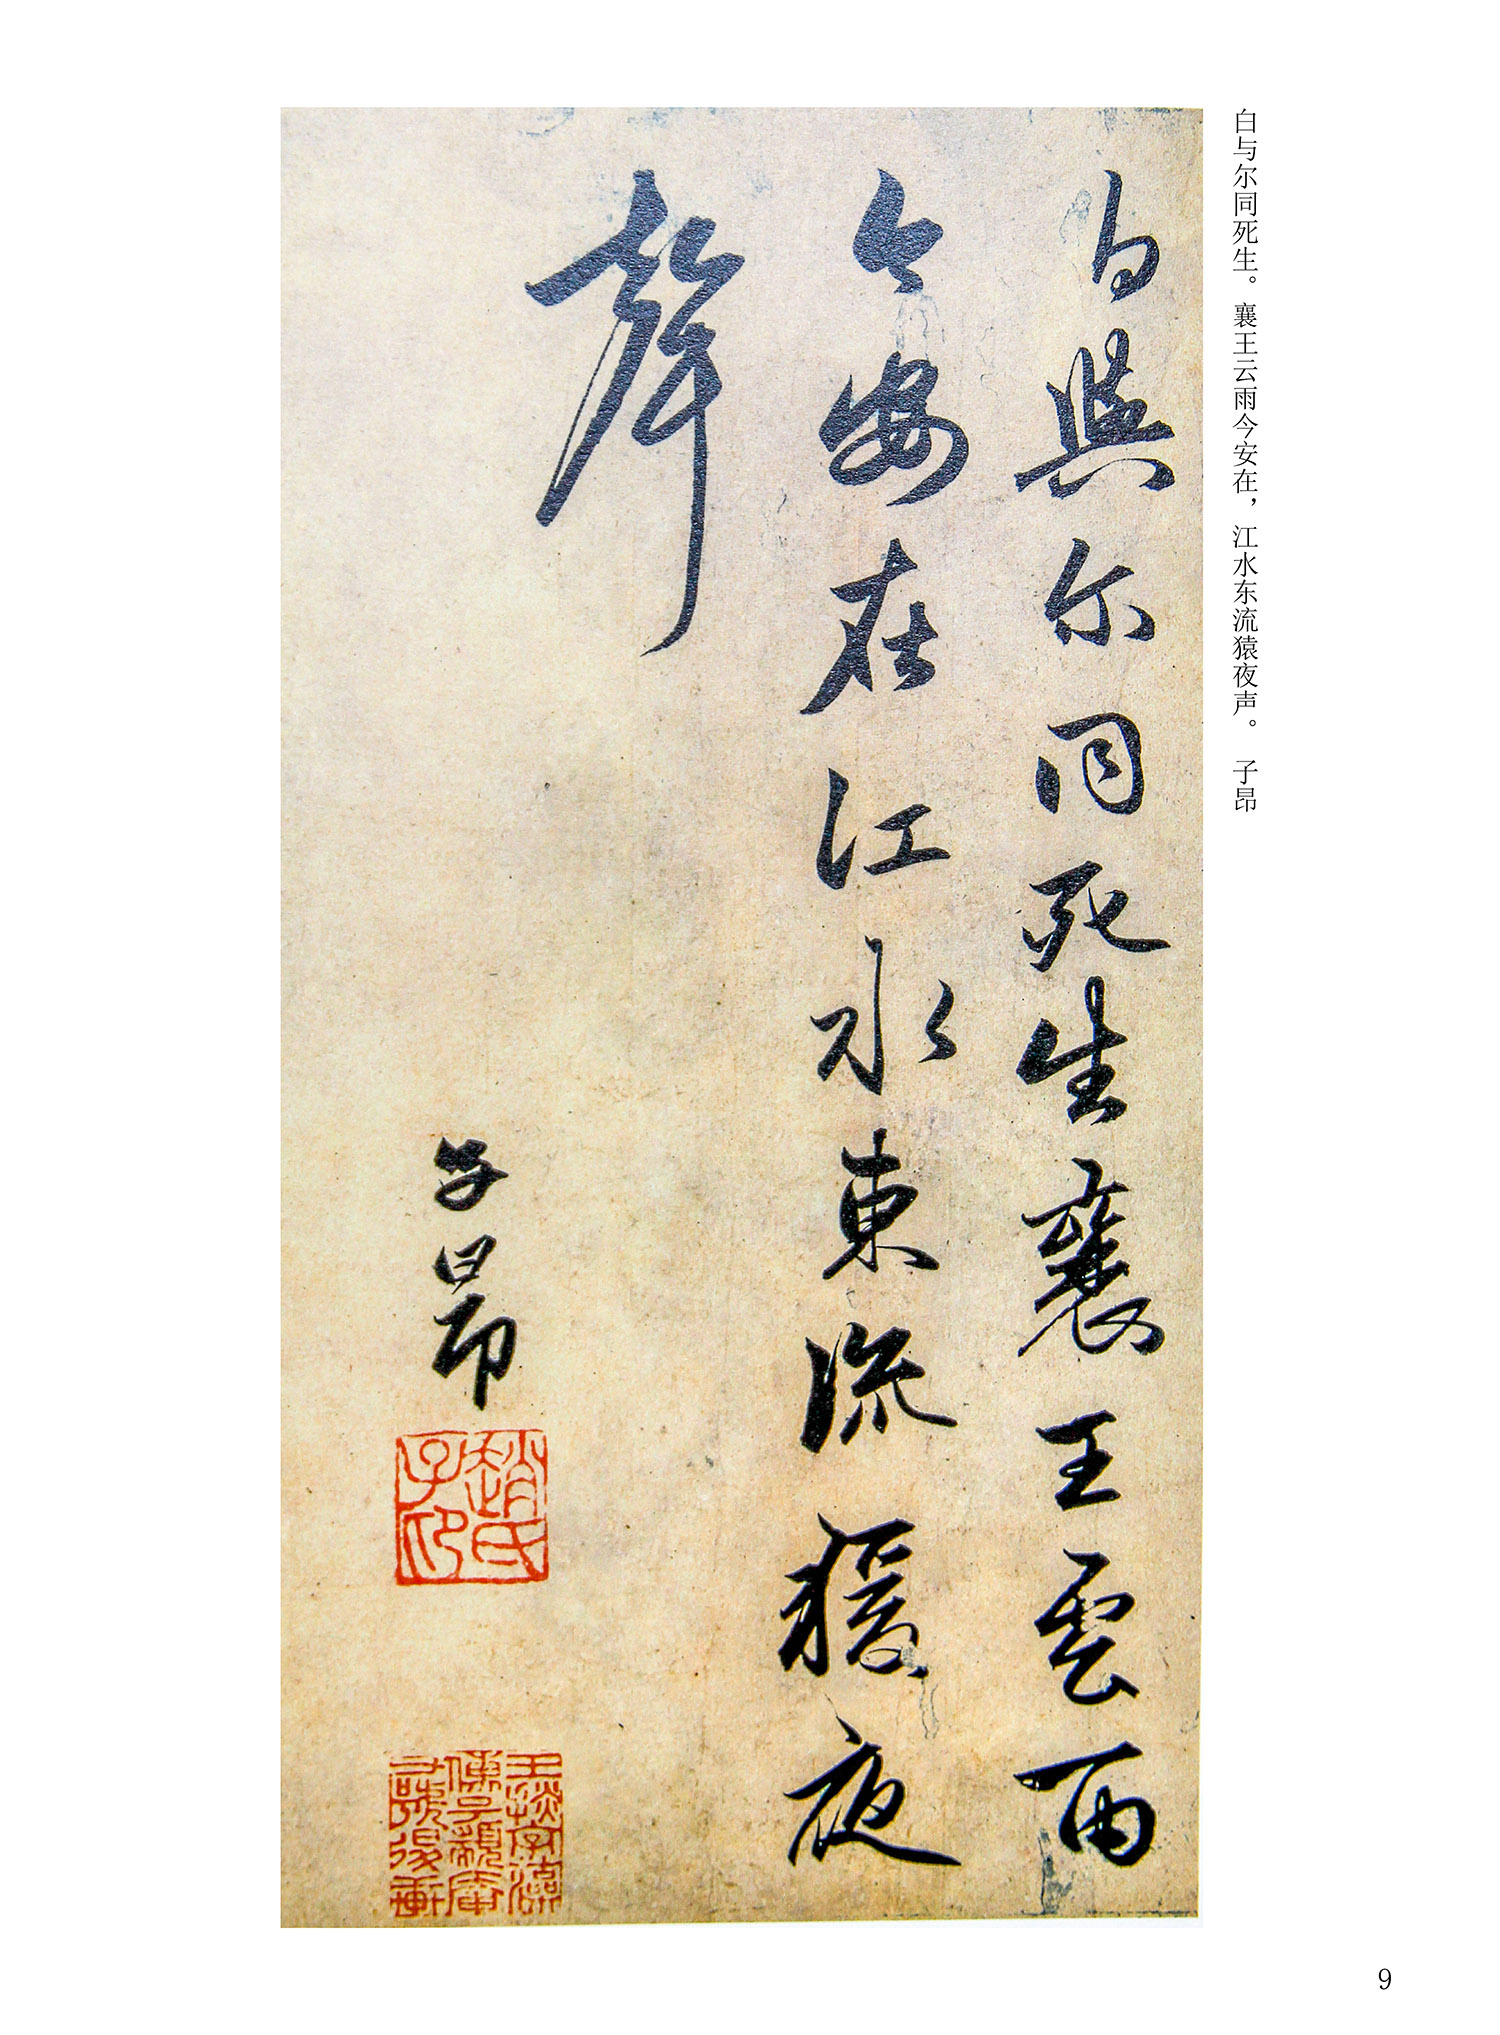 白与尔同死生。襄王云雨今安在，江水东流猿夜声。 子昂
白與尔同死生襄王雲雨
今安在江水東流猨夜
聲
子昂
趙氏
子印
9